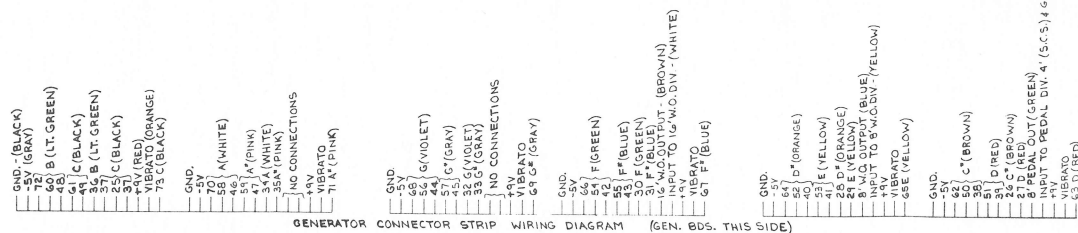 GND.-(BLACK)
-5V (GRAY)
72
60} B (LT. GREEN)
48
61} C (BLACK)
49
36 B (LT. GREEN)
37
25} C (BLACK)
31
+9V (RED)
VIBRATO (ORANGE)
73 C (BLACK)
GND.
-5V
70
58} A (WHITE)
46
59} A# (PINK)
47
34 A (WHITE)
35 A# (PINK)
NO CONNECTIONS
+9V
VIBRATO
71 A# (PINK)
GND.
-5V
68
56} G (VIOLET)
44
57} G# (GRAY)
45
32 G (VIOLET)
33 G# (GRAY)
NO CONNECTIONS
+9V
VIBRATO
69 G# (GRAY)
GND.
-5V
66
54} F (GREEN)
42
55} F# (BLUE)
43
30 F (GREEN)
31 F# (BLUE)
16' W.O. OUTPUT - (BROWN)
INPUT TO 16' W.O. DIV - (WHITE)
+9V
VIBRATO
67 F# (BLUE)
GND.
-5V
64
52} D# (ORANGE)
40
53} E (YELLOW)
41
28 D# (ORANGE)
29 E (YELLOW)
8' W.O. OUTPUT (BLUE)
INPUT TO 8' W.O. DIV - (YELLOW)
+9V
VIBRATO
65 E (YELLOW)
GND.
-5V
62
50} C# (BROWN)
38
51} D (RED)
39
26 C# (BROWN)
27 D (RED)
8' PEDAL OUT (GREEN)
INPUT TO PEDAL DIV. 4' (S.C.S.) &
+9V
VIBRATO
63 D (RED)
GENERATOR CONNECTOR STRIP WIRING DIAGRAM (GEN. BDS. THIS SIDE)